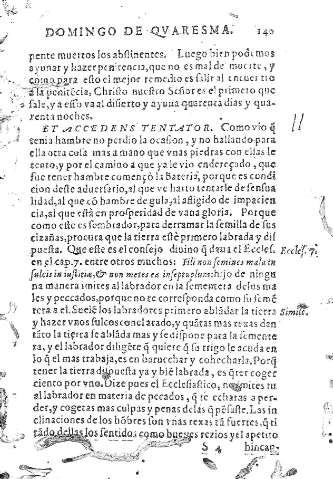 DOMINGO DE QVARESMA. 140
pente muertos los abstinentes. Luego bien podemos
ayunar y hazer penitencia, que no es mal de muerte, y
como para esto el mejor remedio es salir al encuentro
a la penitẽcia, Christo nuestro Señor es el primero que
sale, y a esso va al disierto y ayuna quarenta dias y qua-
renta noches.
ET ACCEDENS TENTATOR. Como vio q̃
tenia hambre no perdio la ocasion, y no hallando para
ella otra cosa mas a mano que vnas piedras con ellas le
tento, y por el camino a que ya le vio endereçado, que
fue tener hambre començò la Bateria, porque es condi
cion deste aduersario, al que ve harto tentarle de sensua
lidad, al que cõ hambre de gula, al afligido de impacien
cia, al que està en prosperidad de vana gloria. Porque
como este es sembrador, para derramar la semilla de sus
cizañas, procura que la tierra estè primero labrada y dis
puesta. Que este es el consejo diuino q̃ dezia el Eccles. Eccles. 7.
en el cap. 7. entre otros muchos: Fili non semines mala in
sulcis iniustitiæ, & non metes ea in septuplum: hijo de ningu
na manera imites al labrador en la sementera de los ma
les y peccados, porque no te corresponda como su semẽ
tera a el. Suelẽ los labradores primero ablãdar la tierra Simile.
y hazer vnos sulcos con el arado, y quãtas mas rexas dan
tãto la tierra se ablãda mas y se dispone para la semente
ra, y el labrador diligẽte q̃ quiere q̃ su trigo le acuda en
lo q̃ el mas trabaja, es en baruechar y cohecharla. Porq̃
tener la tierra dispuesta ya y biẽ labrada, es q̃rer coger
ciento por vno. Dize pues el Ecclesiastico, no imites tu
al labrador en materia de pecados, q̃ te echaras a per-
der, y cogeras mas culpas y penas de las q̃ pẽsaste. Las in
clinaciones de los hõbres son vnas rexas tã fuertes, q̃ ti
rãdo dellas los sentidos como bueyes rezios y el apetito
S 4 hincap.